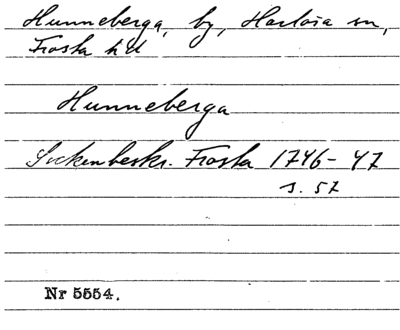 Hunneberga, by, Harlösa sn,
Frosta hd
Hunneberga
Sockenbeskr. Frosta 1746-47
s. 57
Nr 5554.